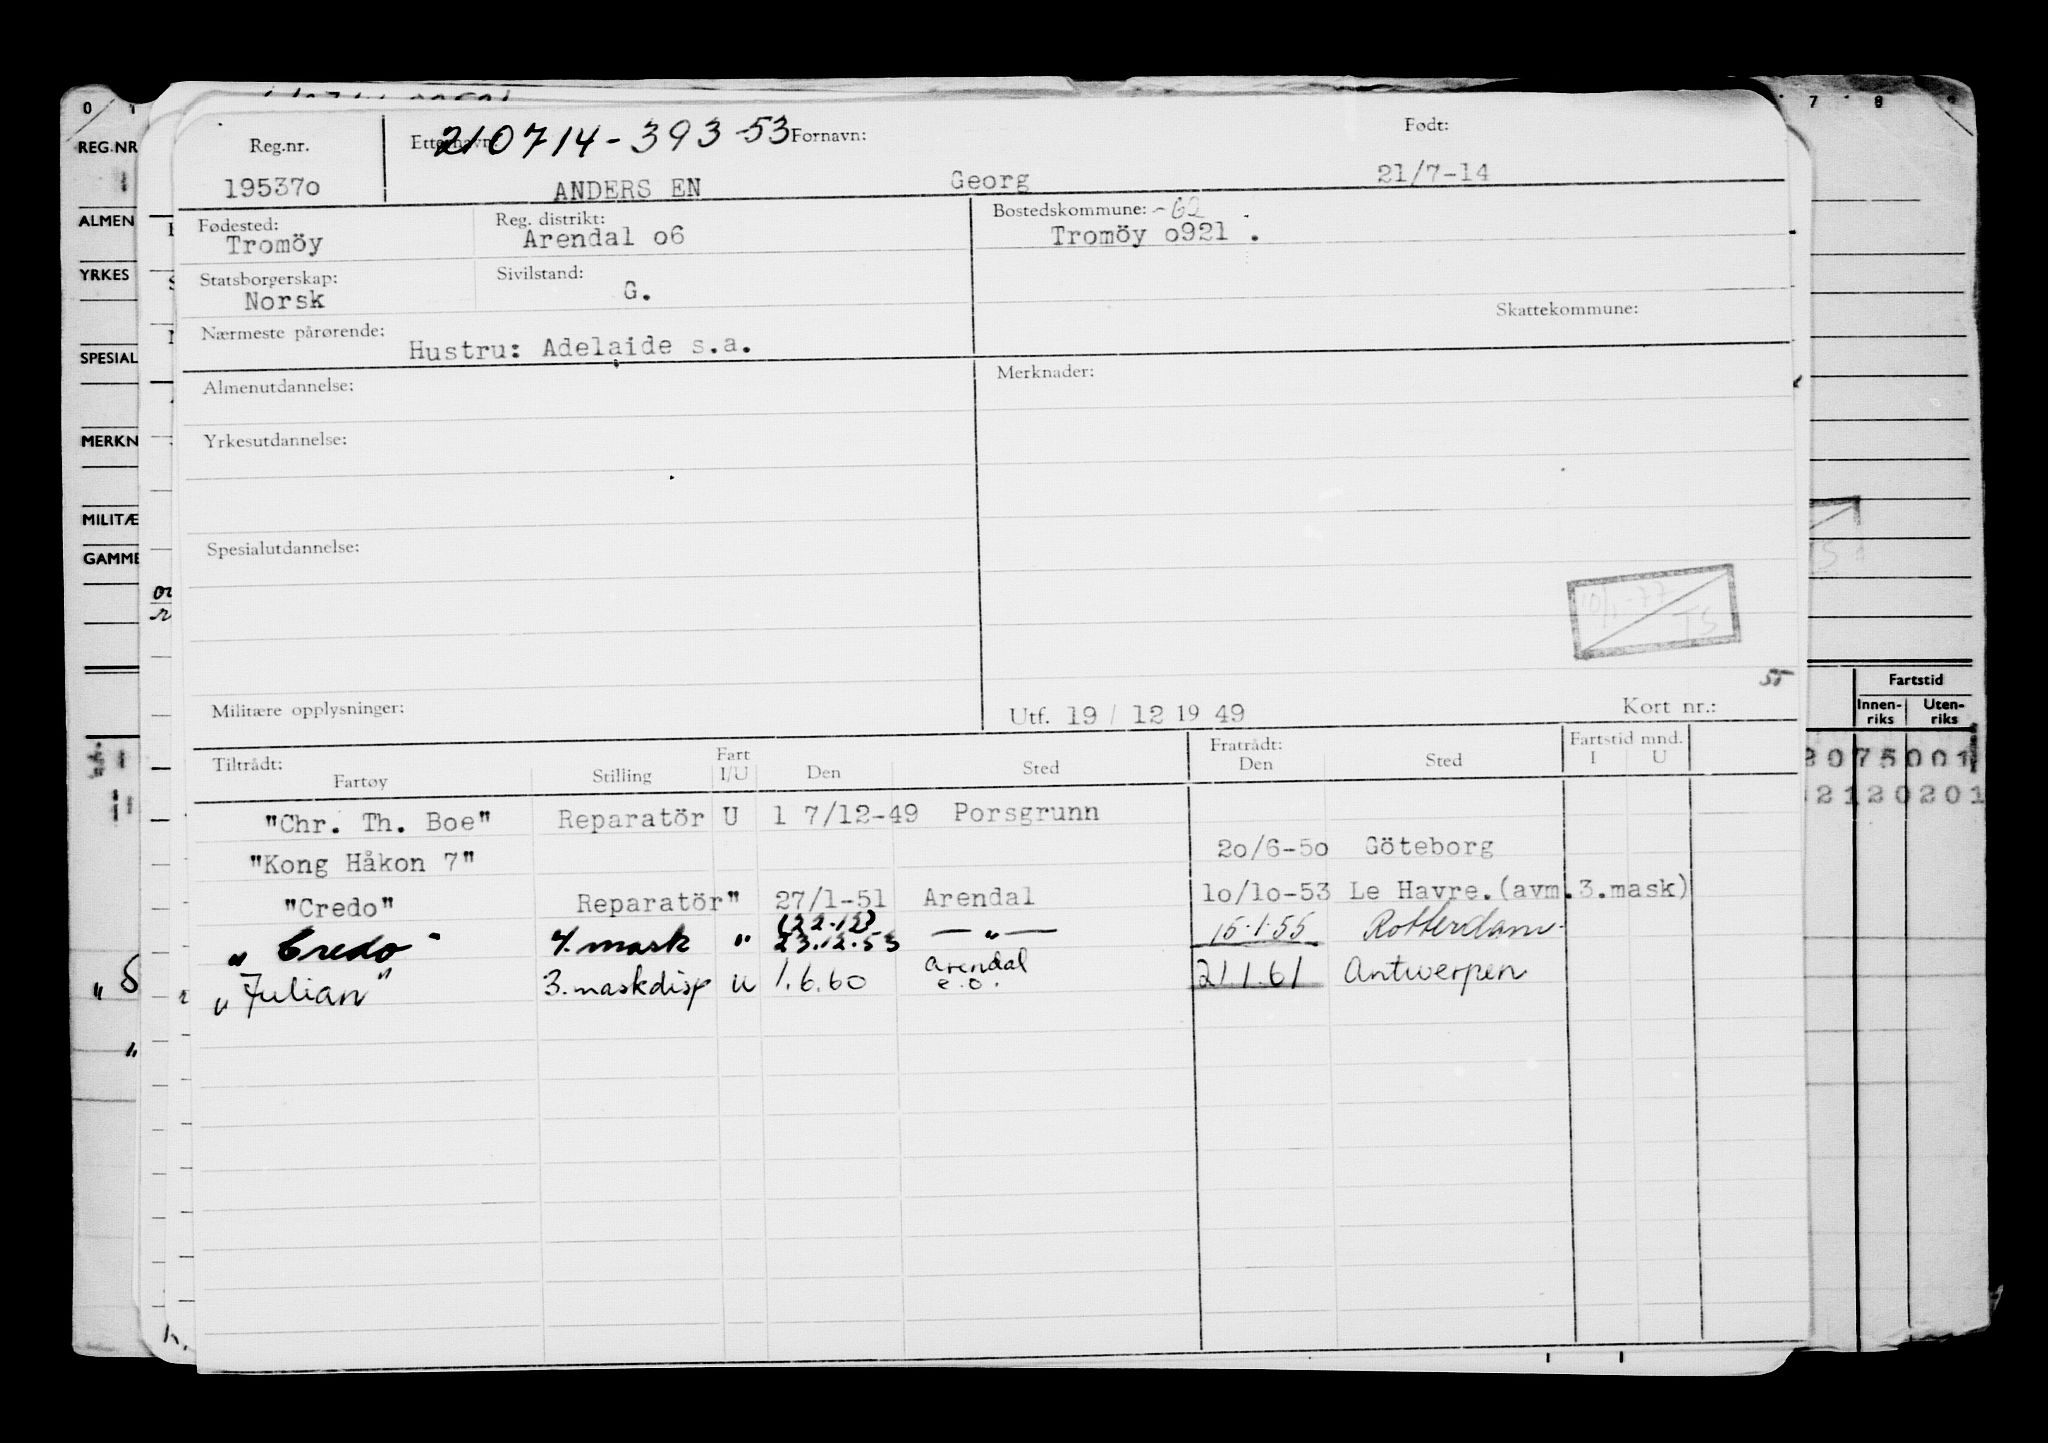 0 1 7 8 9
REG.NR
ALMEN
YRKES
SPESIAL
MERKN
MILITÆ
GAMME
Reg.nr. Etternavn: 210714-393-53 Fornavn: Født:
195370 ANDERS EN Georg 21/7-14
Fødested: Reg. distrikt: Bostedskommune: -62
Tromöy Arendal o6 Tromöy o921 .
Statsborgerskap: Sivilstand:
Norsk G.
Skattekommune:
Nærmeste pårørende:
Hustru: Adelaide s.a.
Almenutdannelse: Merknader:
Yrkesutdannelse:
Spesialutdannelse:
10/1-77
TS
55
Militære opplysninger: Utf. 19 / 12 19 49 Kort nr.:
Tiltrådt: Fart Fratrådt: Fartstid mnd.
Fartøy Stilling I/U Den Sted Den Sted I U
"Chr. Th. Boe" Reparatör U 1 7/12-49 Porsgrunn
"Kong Håkon 7" 2o/6-5o Göteborg
"Credo" Reparatör " 27/1-51 Arendal 1o/1o-53 Le Havre.(avm.3.mask)
(22.12)
"Credo" 4. mask " 23.12.53 — " — 15.1.55 Rotterdam
"Julian" 3. maskdisp U 1.6.60 Arendal e.o. 21.1.61 Antwerpen
Fartstid
Innen-riks Uten-riks
2075001
2120201